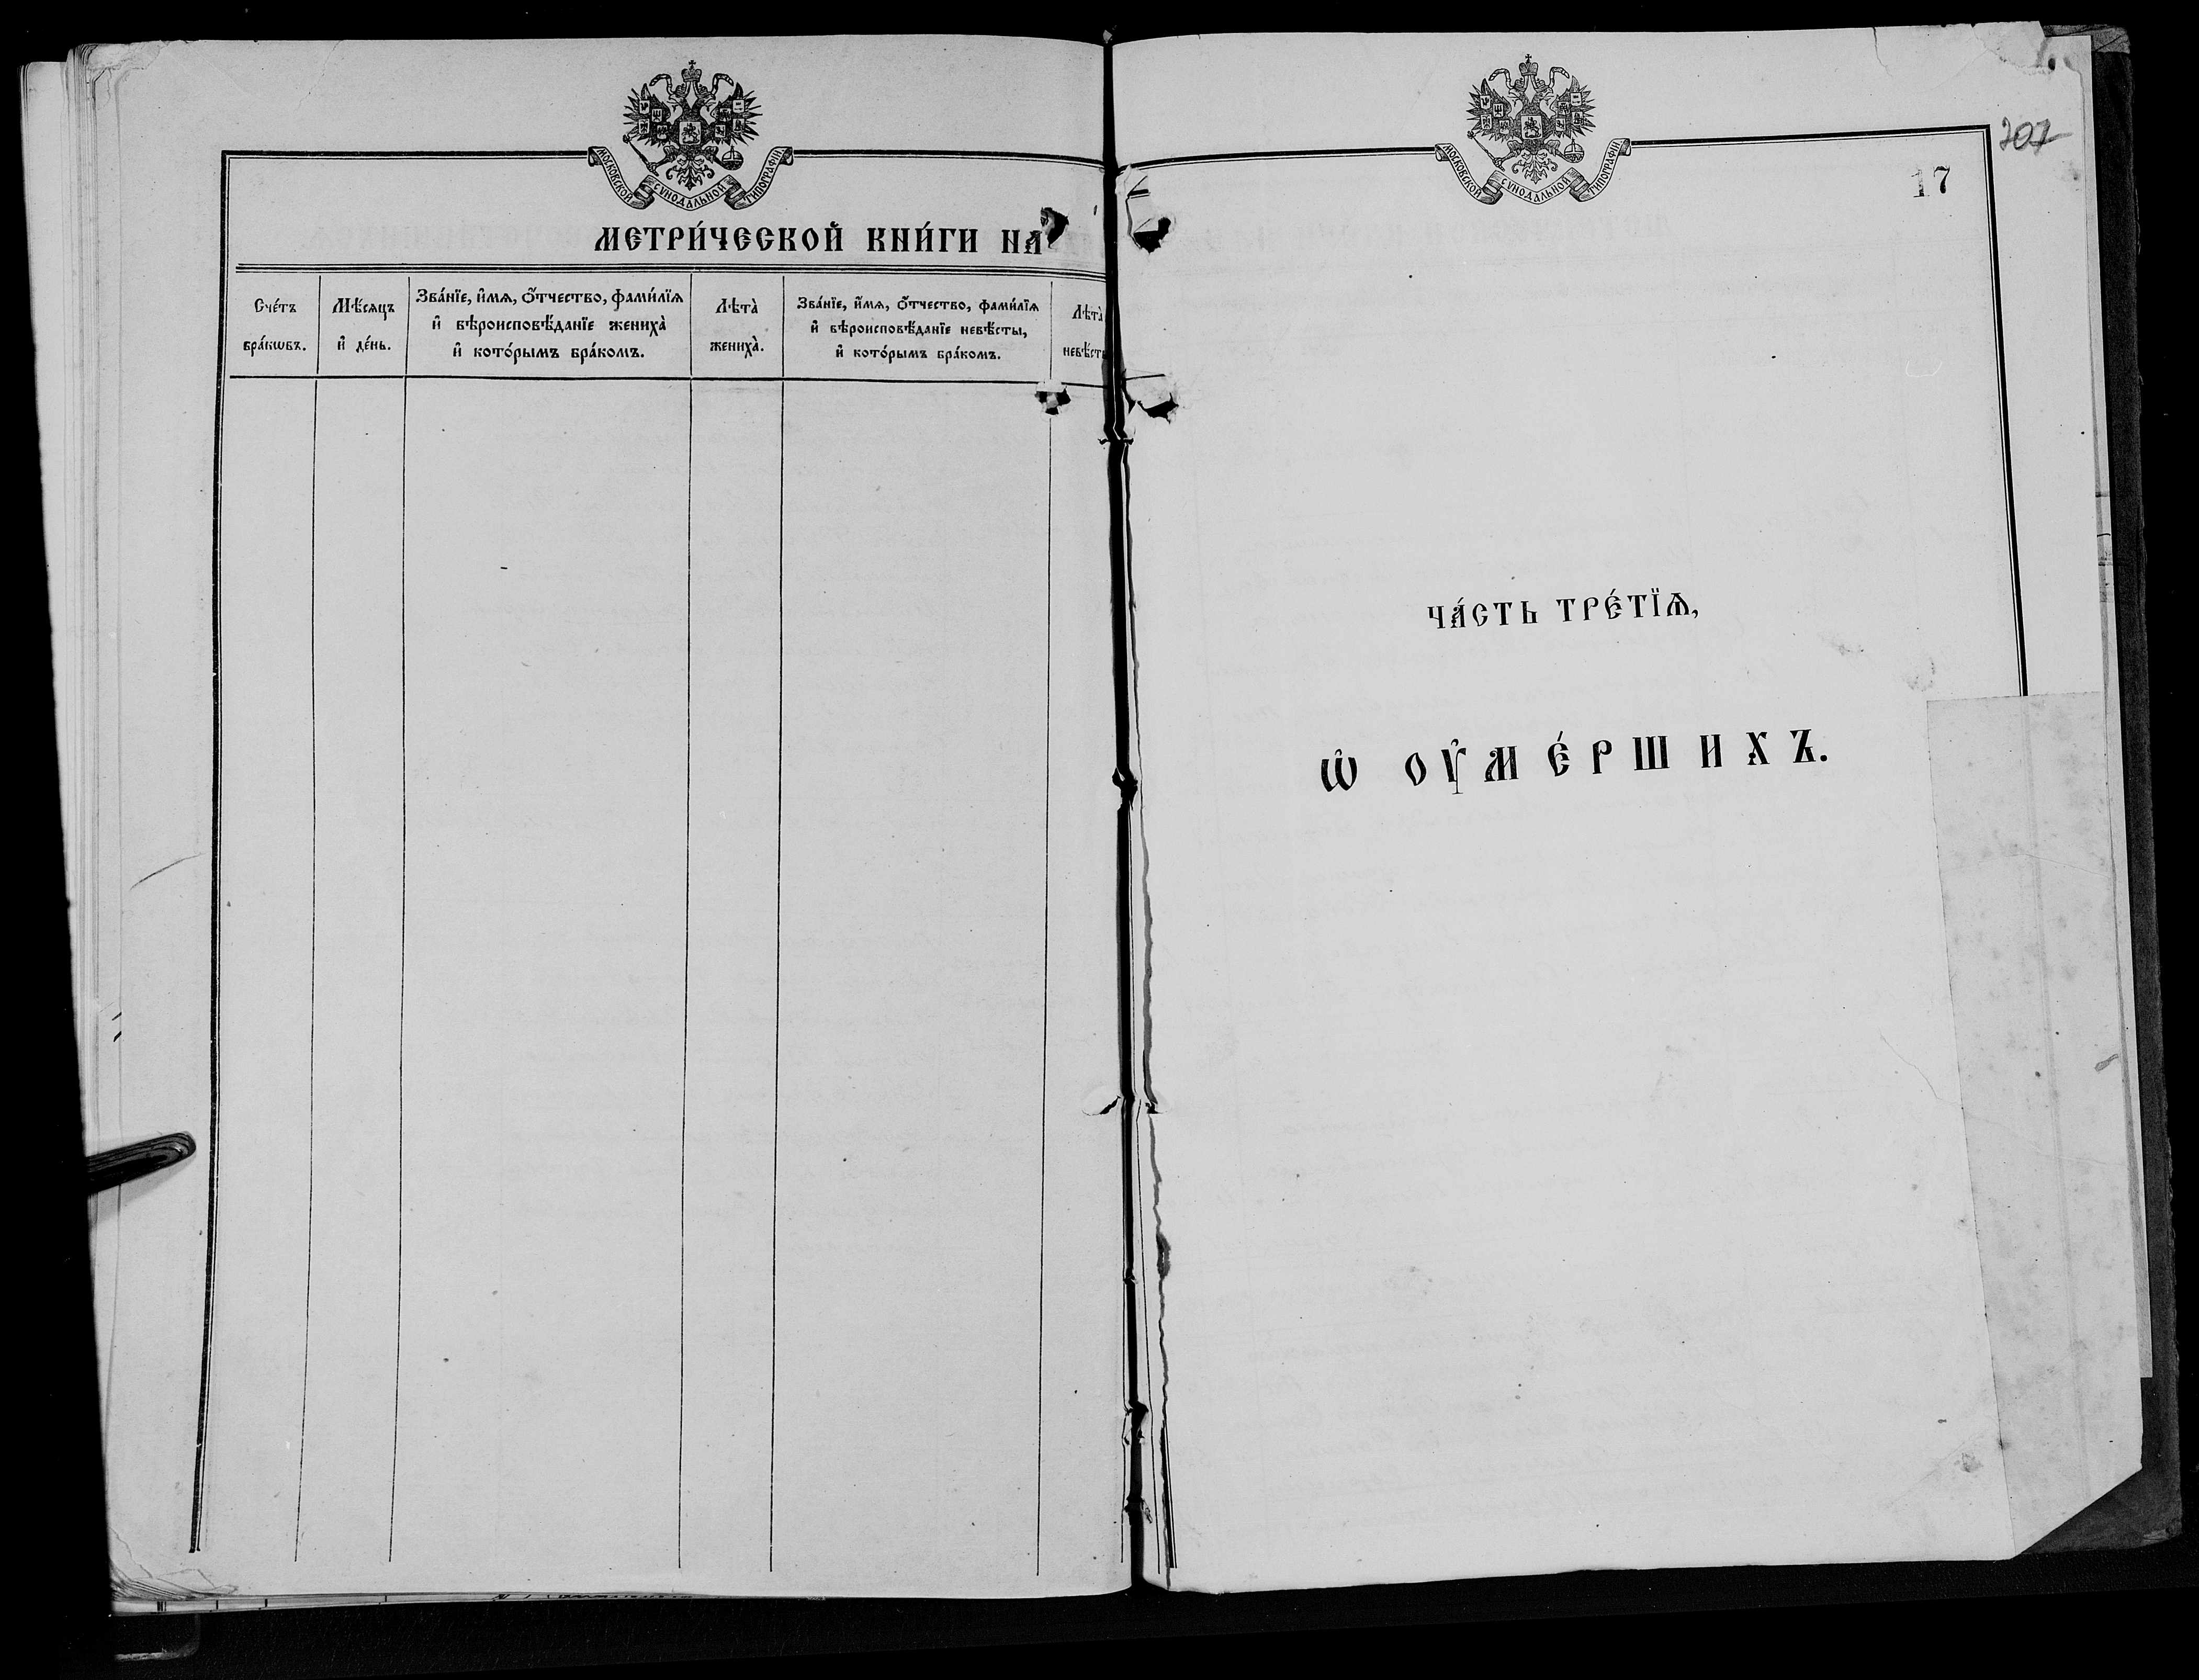 МОСКОВСКОЙ СѴНОДАЛЬНОЙ ТИПОГРАФІИ
МЕТРИ́ЧЕСКОЙ КНИ́ГИ НА
Сче́тъ бра́кѡвъ.
Мѣ́сяцъ и҆ де́нь.
Зва́нїе, и҆́мѧ, ѻ҆́тчество, фами́лїѧ
и҆ вѣроисповѣ́данїе жениха̀
и҆ кото́рымъ бра́комъ.
Лѣта̀ жениха̀.
Зва́нїе, и҆́мѧ, ѻ҆́тчество, фами́лїѧ
и҆ вѣроисповѣ́данїе невѣ́сты,
и҆ кото́рымъ бра́комъ.
Лѣта̀
невѣ́ст
МОСКОВСКОЙ СѴНОДАЛЬНОЙ ТИПОГРАФІИ
207
17
ЧА́СТЬ ТРЕ́ТЇѦ,
Ѡ҆ ОУ҆МЕ́РШИХЪ.